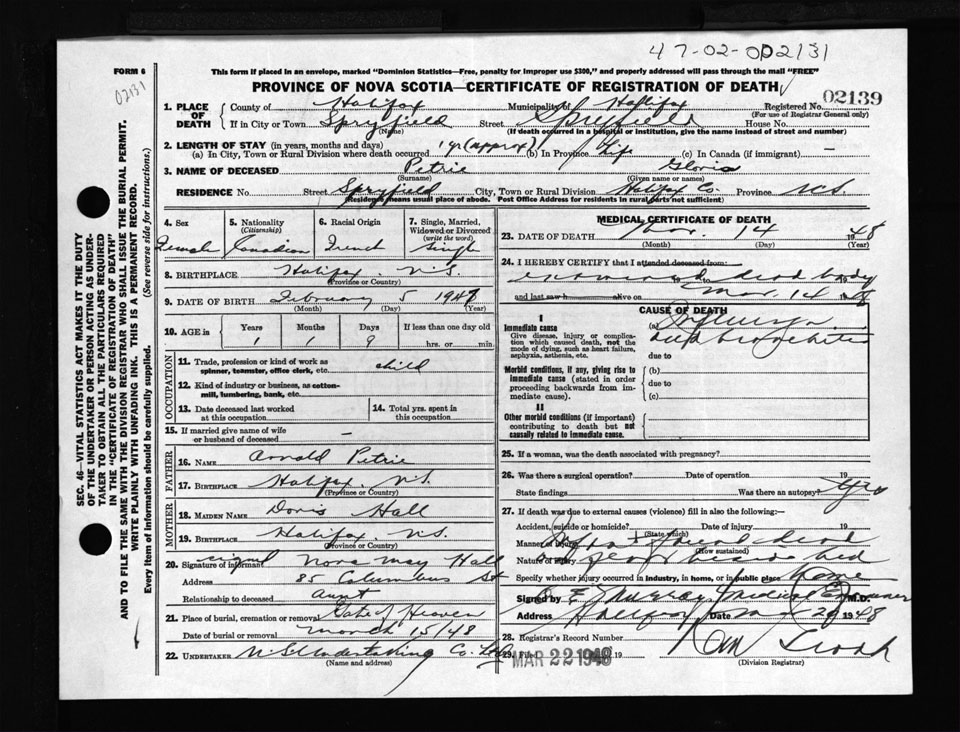 47-02-002131
FORM 6
02131
This form if placed in an envelope, marked "Dominion Statistics—Free, penalty for improper use $300," and properly addressed will pass through the mail "FREE"
PROVINCE OF NOVA SCOTIA—CERTIFICATE OF REGISTRATION OF DEATH
1. PLACE OF DEATH { County of Halifax Municipality of Halifax Registered No. 02139
(For use of Registrar General only)
If in City or Town Spryfield Street Spryfield House No.
(Name) (If death occurred in a hospital or institution, give the name instead of street and number)
2. LENGTH OF STAY (in years, months and days)
(a) In City, Town or Rural Division where death occurred 1 yr (approx) (b) In Province Life (c) In Canada (if immigrant) —
3. NAME OF DECEASED Petrie Gloria
(Surname) (Given name or names)
RESIDENCE No. Street Spryfield City, Town or Rural Division Halifax Co. Province N.S.
(Residence means usual place of abode. Post Office Address for residents in rural parts not sufficient)
4. Sex 5. Nationality (Citizenship) 6. Racial Origin 7. Single, Married, Widowed or Divorced (write the word)
Female Canadian French Single
8. BIRTHPLACE Halifax N.S.
(Province or Country)
9. DATE OF BIRTH February 5 1947
(Month) (Day) (Year)
10. AGE in { Years Months Days If less than one day old
1 1 9 hrs. or min.
OCCUPATION
11. Trade, profession or kind of work as spinner, teamster, office clerk, etc. child
12. Kind of industry or business, as cotton-mill, lumbering, bank, etc.
13. Date deceased last worked at this occupation
14. Total yrs. spent in this occupation
15. If married give name of wife or husband of deceased —
FATHER
16. NAME Arnold Petrie
17. BIRTHPLACE Halifax N.S.
(Province or Country)
MOTHER
18. MAIDEN NAME Doris Hall
19. BIRTHPLACE Halifax N.S.
(Province or Country)
20. Signature of informant Nora May Hall
Address 85 Columbus St
Relationship to deceased aunt
21. Place of burial, cremation or removal Gate of Heaven
Date of burial or removal March 15/48
22. UNDERTAKER N.S. Undertaking Co. Ltd
(Name and address)
MEDICAL CERTIFICATE OF DEATH
23. DATE OF DEATH Mar. 14 1948
(Month) (Day) (Year)
24. I HEREBY CERTIFY that I attended deceased from:
examined dead body
and last saw h alive on Mar 14 1948
CAUSE OF DEATH
I
Immediate cause
Give disease, injury or complication which caused death, not the mode of dying, such as heart failure, asphyxia, asthenia, etc.
(a)
due to
Morbid conditions, if any, giving rise to immediate cause (stated in order proceeding backwards from immediate cause).
(b)
due to
(c)
II
Other morbid conditions (if important) contributing to death but not causally related to immediate cause.
25. If a woman, was the death associated with pregnancy?
26. Was there a surgical operation? Date of operation 19
State findings Was there an autopsy? Yes
27. If death was due to external causes (violence) fill in also the following:—
Accident, suicide or homicide? Date of injury 19
(State which)
Manner of injury found dead
(How sustained)
Nature of injury on floor beside bed
Specify whether injury occurred in industry, in home, or in public place Home
Signed by E Murray Medical Examiner M.D.
Address Halifax Date Mar 20 1948
28. Registrar's Record Number
29. Filed MAR 22 1948 19
(Division Registrar)
SEC. 46—VITAL STATISTICS ACT MAKES IT THE DUTY
OF THE UNDERTAKER OR PERSON ACTING AS UNDER-
TAKER TO OBTAIN ALL THE PARTICULARS REQUIRED
IN THE "CERTIFICATE OF REGISTRATION OF DEATH"
AND TO FILE THE SAME WITH THE DIVISION REGISTRAR WHO SHALL ISSUE THE BURIAL PERMIT.
WRITE PLAINLY WITH UNFADING INK. THIS IS A PERMANENT RECORD.
Every item of information should be carefully supplied. (See reverse side for instructions.)